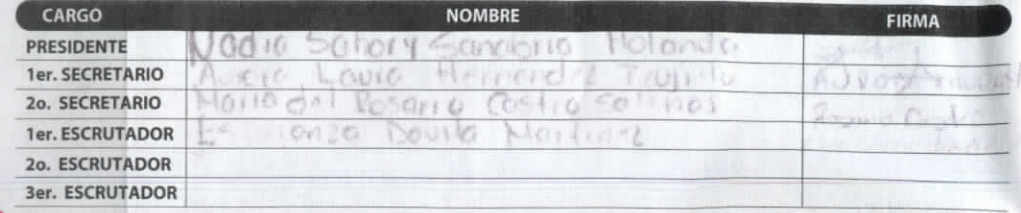 CARGO NOMBRE FIRMA
PRESIDENTE Nadia Sahory Sanabria Holanda
1er. SECRETARIO Laura Hernandez Trujillo
2o. SECRETARIO Maria del Rosario Castro Salinas
1er. ESCRUTADOR Davila Martinez
2o. ESCRUTADOR
3er. ESCRUTADOR